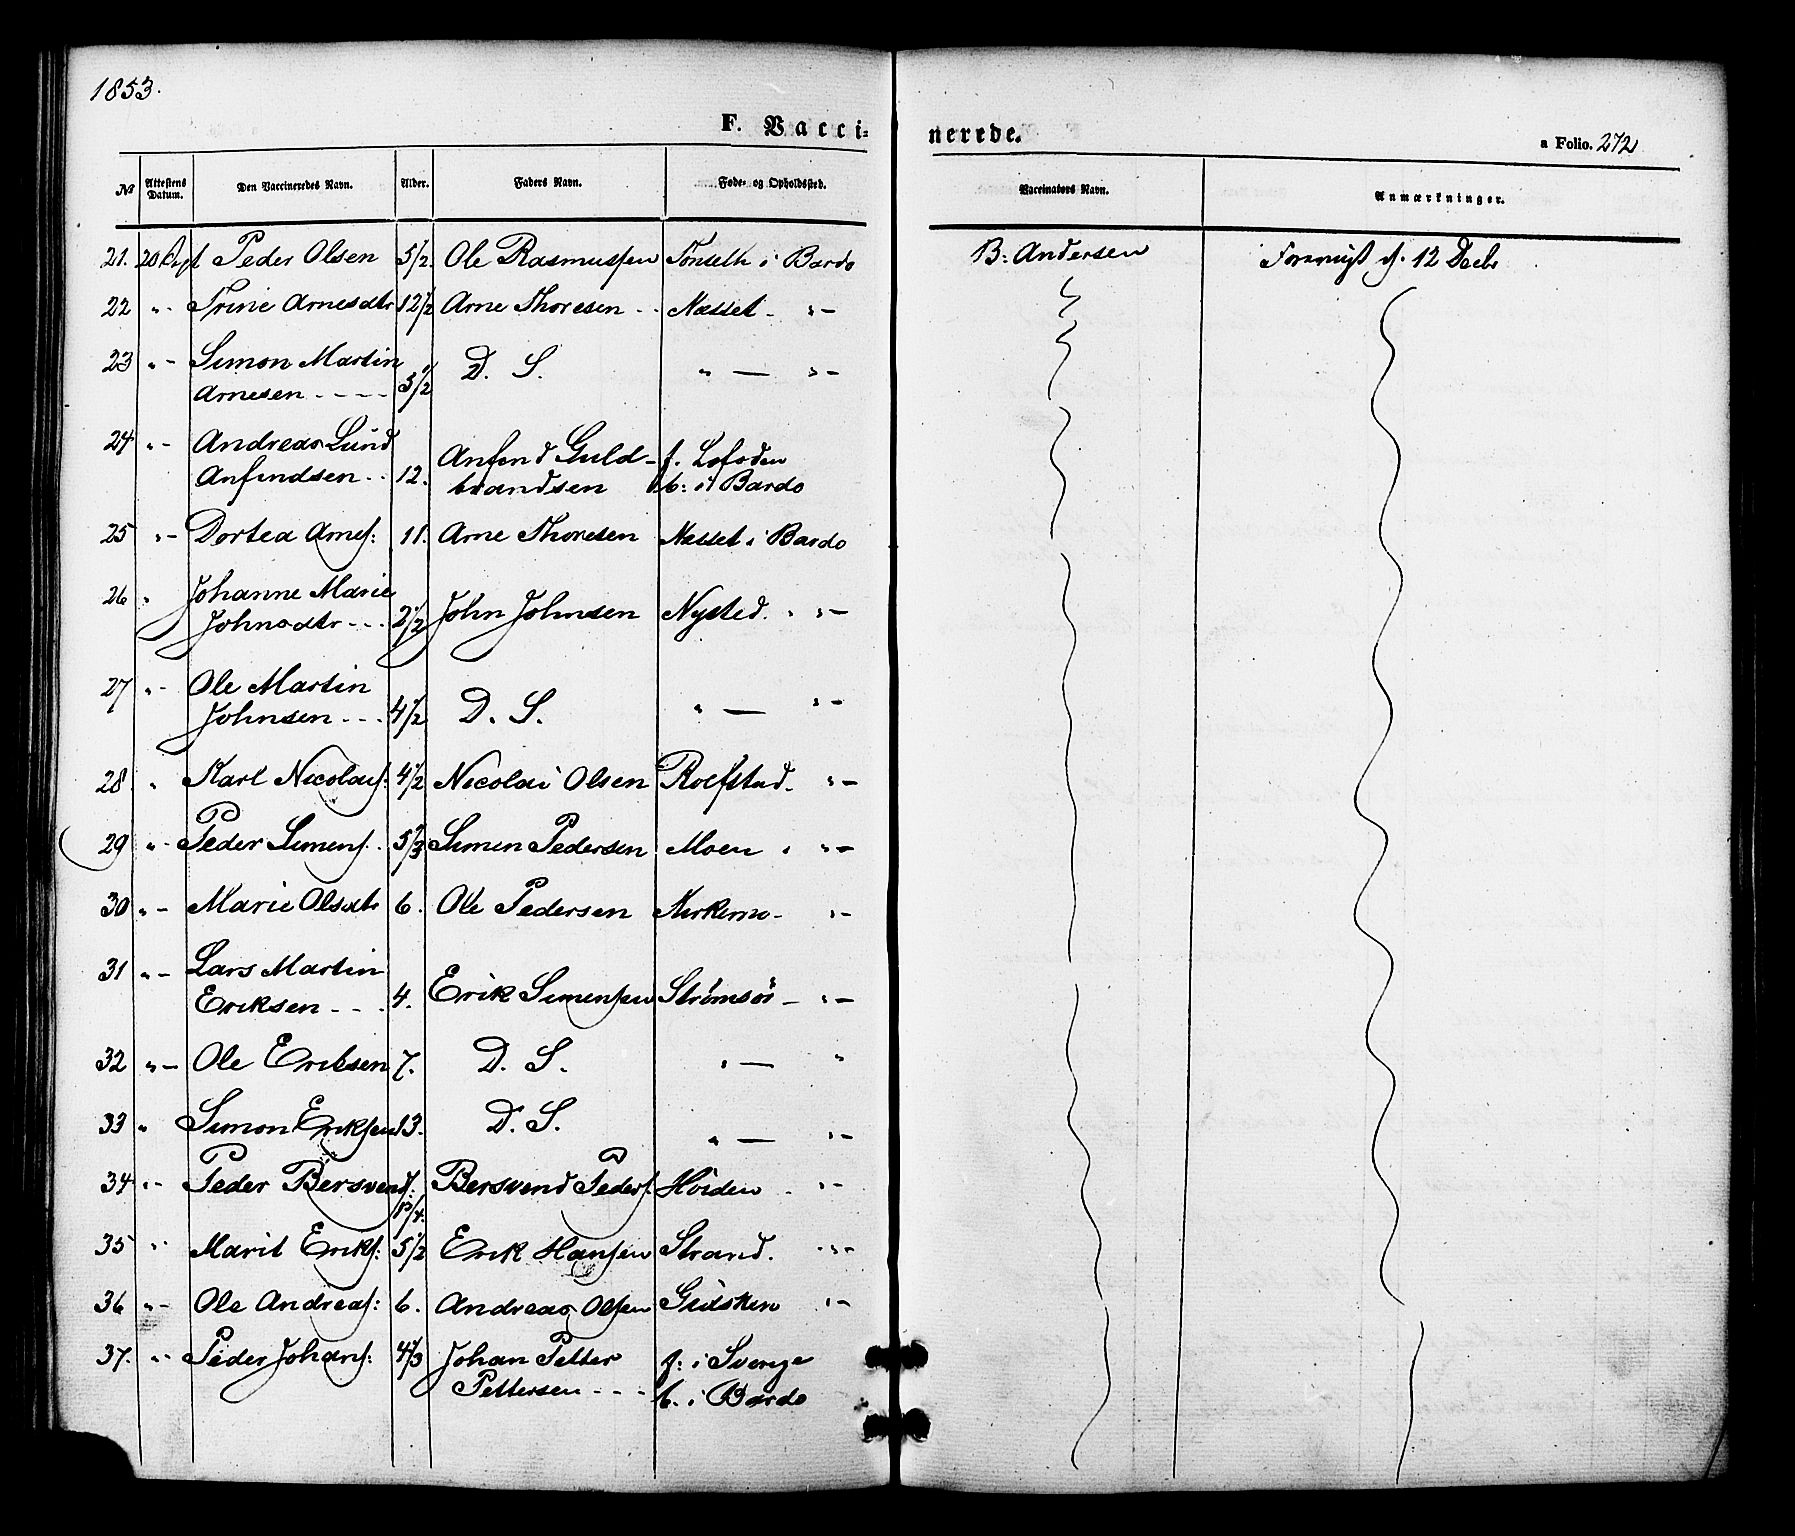 1853.
F. Vaccinerede.
a Folio. 272
No Attestens Datum. Den Vaccineredes Navn. Alder. Faders Navn. Føde- og Opholdssted. Vaccinators Navn. Anmærkninger.
21. 20 Peder Olsen 5 1/2. Ole Rasmussen Fonseth i Bardo B: Andersen 12 Decbr
22 " - Trine Arnesdtr 12 1/2 Arne Thoresen - - Nesset - " -
23 " - Simon Martin
Arnesen - - - - 3 1/2 D. S. " — " -
24 " - Andreas Lund
Anfindsen - - 12. Anfend Guld-
brandsen f. Lofoden
b: i Bardo
25 " - Dortea Arnes: 11. Arne Thoresen Nesset i Bardo
26 " Johanne Marie
Johnsdtr - - - 2 1/2 John Johnsen Nysted. " " -
27 " - Ole Martin
Johnsen - - - 4 1/2 D. S. " — " -
28 " Karl Nicolais: 4 1/2 Nicolai Olsen Rolfstad - " -
29 " - Peder Simens. 5 2/3 Simen Pedersen Moen " " -
30 " - Marie Olsdtr 6. Ole Pedersen Kirkemo - " -
31 " - Lars Martin
Eriksen - - - 4. Erik Simensen Strømsør - " -
32 " - Ole Eriksen 7. D. S. " — "
33 " Simon Eriksen 13. D. S. " — " -
34 " - Peder Bersvends: Bersvend Peders. - " -
35 " Marit Eriks: 5 1/2 Erik Hansen Strand. " " -
36 " - Ole Andreas: 6. Andreas Olsen " -
37. " - Peder Johans: 4 1/3 Johan Petter
Pettersen - - - f: i Sverige
b. i Bardo